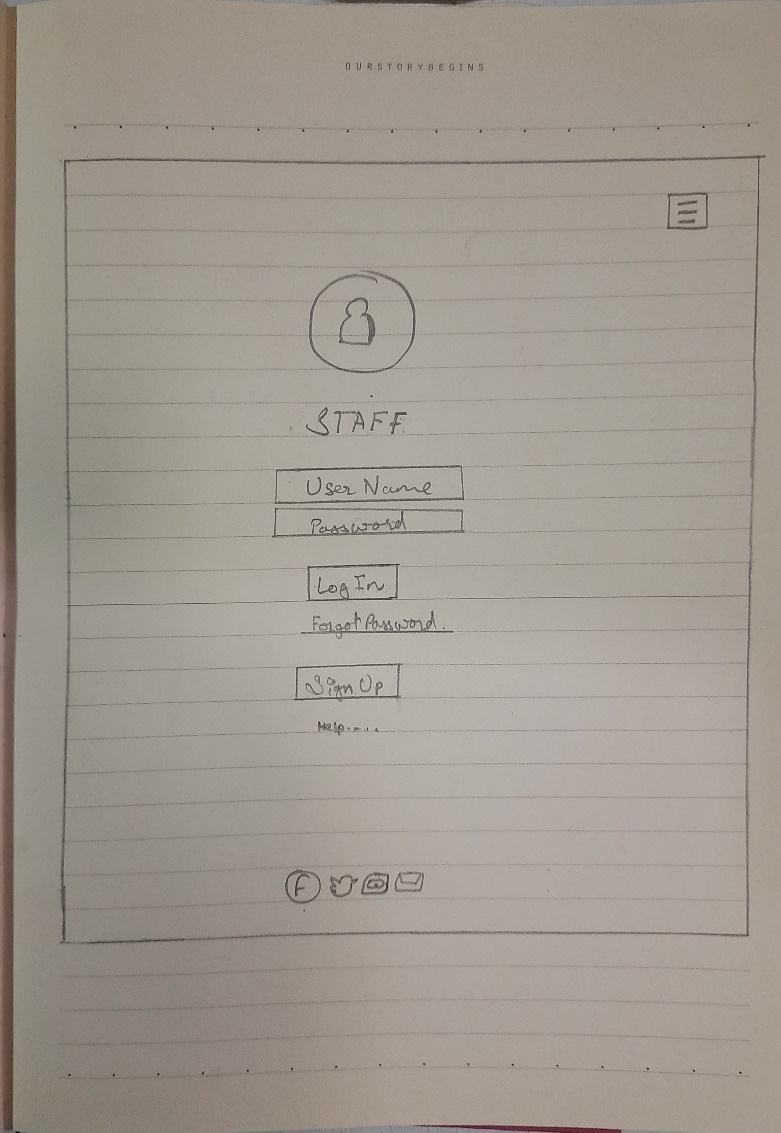 OURSTORYBEGINS
STAFF
User Name
Password
Log In
Forgot Password.
Sign Up
Help.....
F